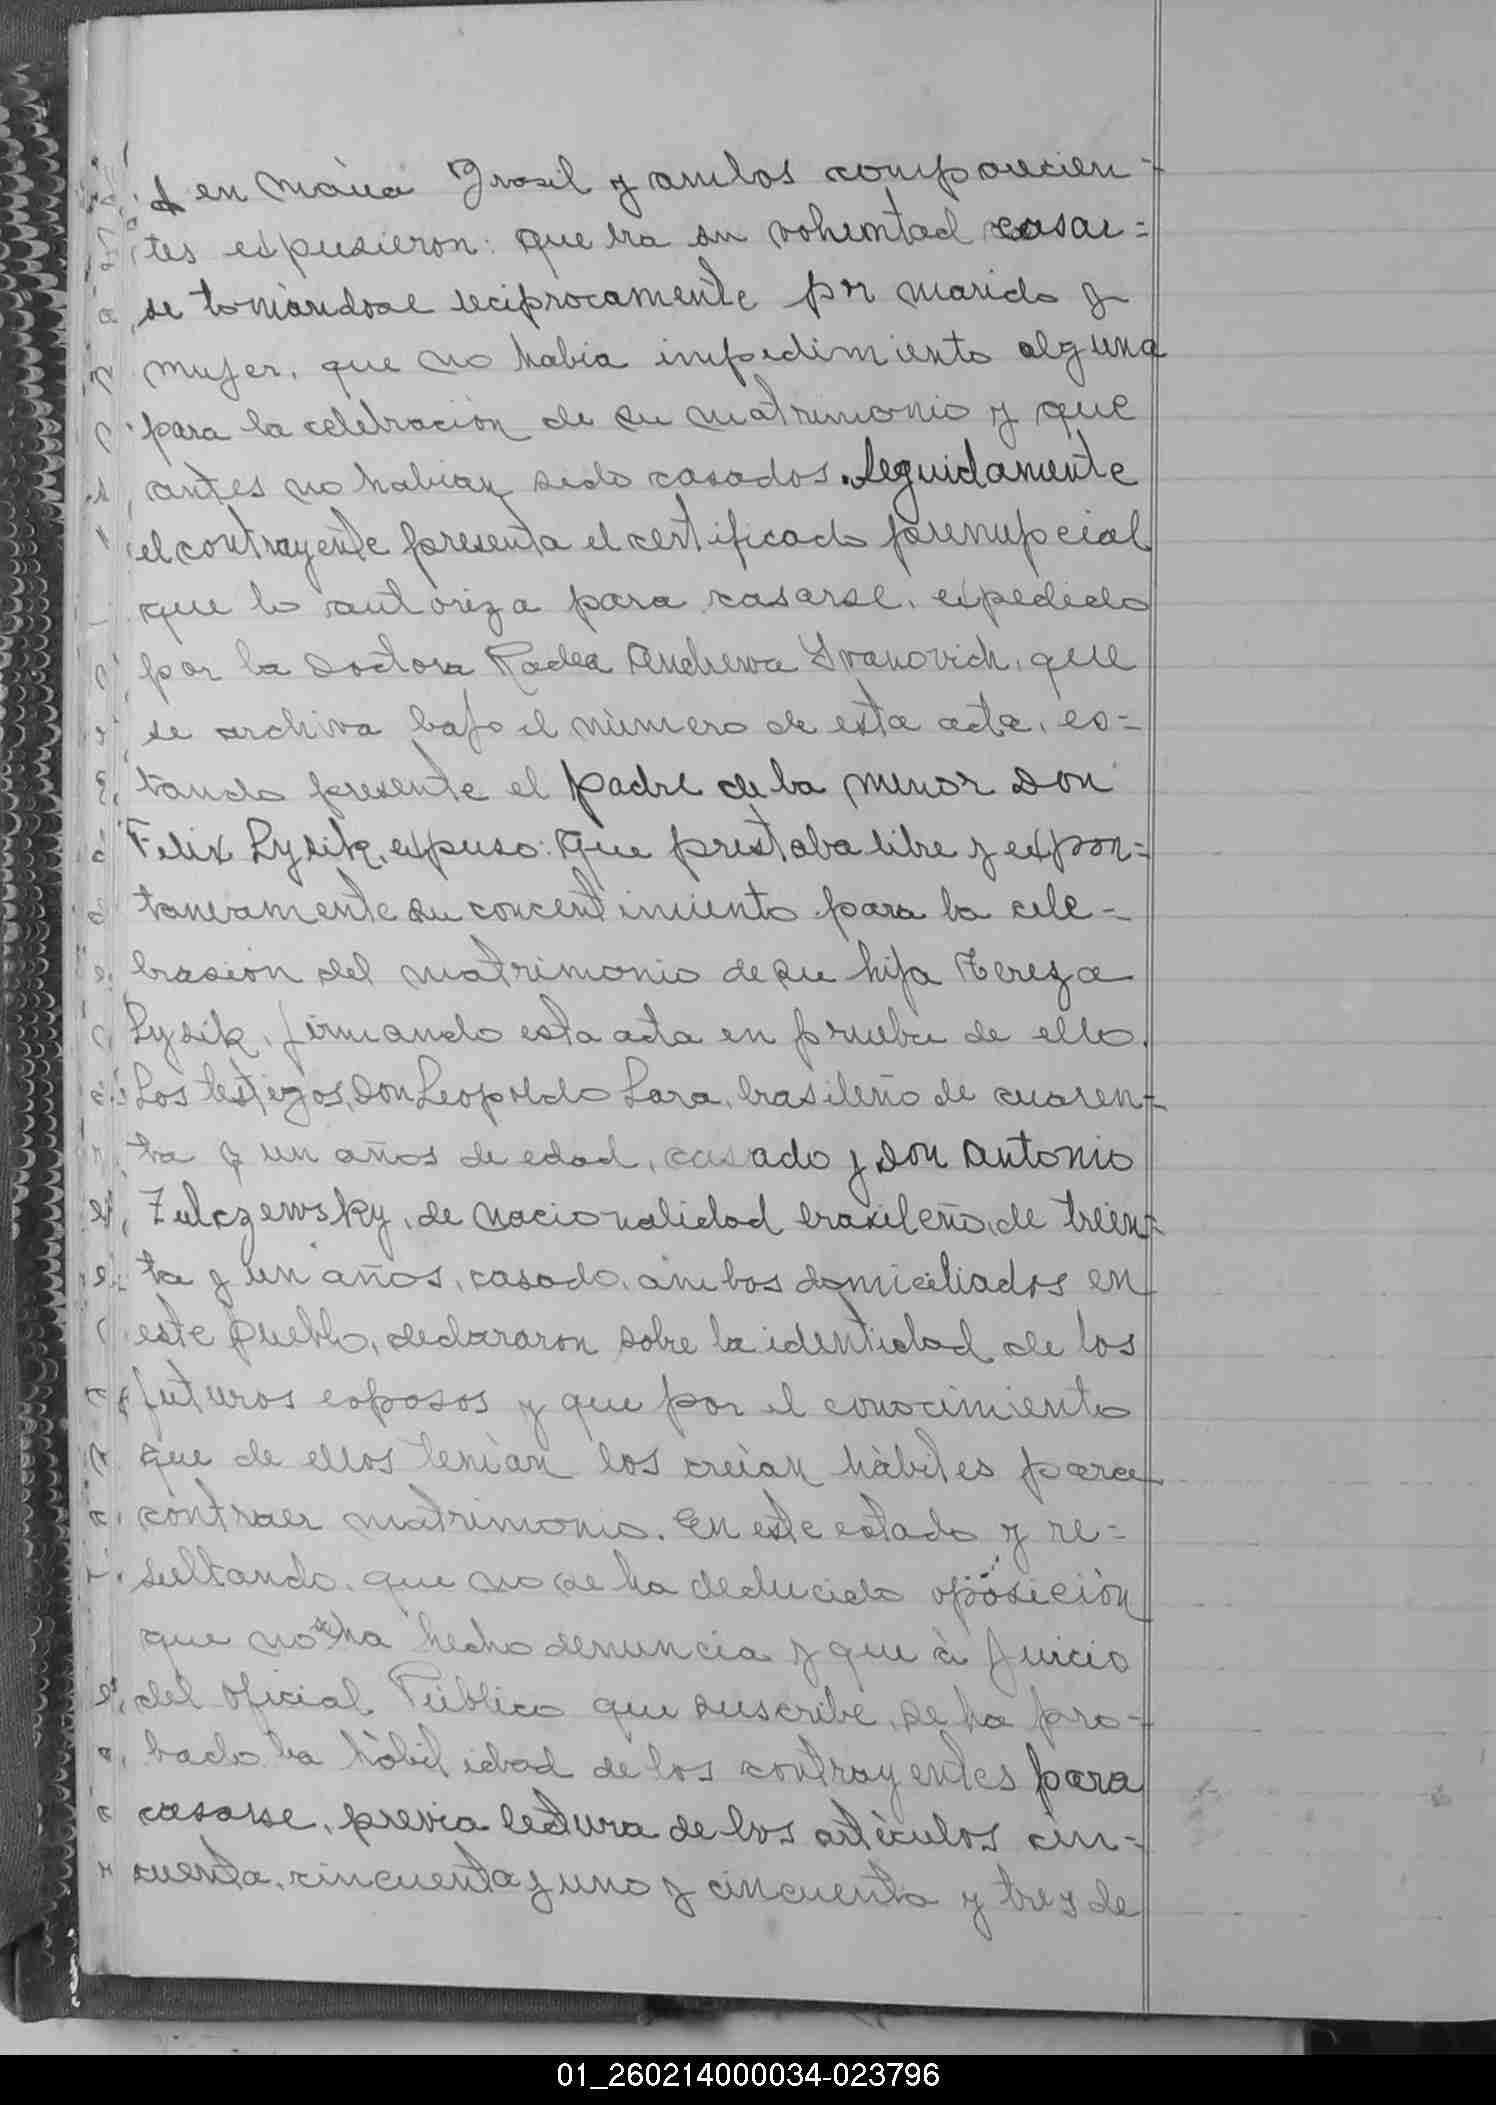 en Máua Brasil y ambos comparecien-
tes expusieron: que era su voluntad casar=
se tomándose reciprocamente por marido y
mujer, que no habia impedimiento alguna
para la celebración de su matrimonio y que
antes no habian sido casados. Seguidamente
el contrayente presenta el certificado prenupcial
que lo autoriza para casarse, expedido
por la Doctora Radea Andrewa Ivanovich, que
se archiva bajo el número de esta acta, es=
tando presente el padre de la menor Don
Felix Lysik, expuso: Que prestaba libre y expon=
taneamente su concentimiento para la cele-
brasion del matrimonio de su hija Tereza
Lysik, firmando esta acta en prueba de ello.
Los testigos, Don Leopoldo Lara, brasileño de cuaren-
ta y un años de edad, casado y Don Antonio
Zulczewsky, de nacionalidad brasileño, de trein=
ta y un años, casado, ambos domiciliados en
este pueblo, declararon sobre la identidad de los
futuros esposos y que por el conocimiento
que de ellos tenían los creían hábiles para
contraer matrimonio. En este estado y re=
sultando que no se ha deducido oposición
que no se ha hecho denuncia y que á juicio
del Oficial Público que suscribe, se ha pro-
bado la habilidad de los contrayentes para
casarse, previa lectura de los artículos cin-
cuenta, cincuenta y uno y cincuenta y tres de
01_260214000034-023796